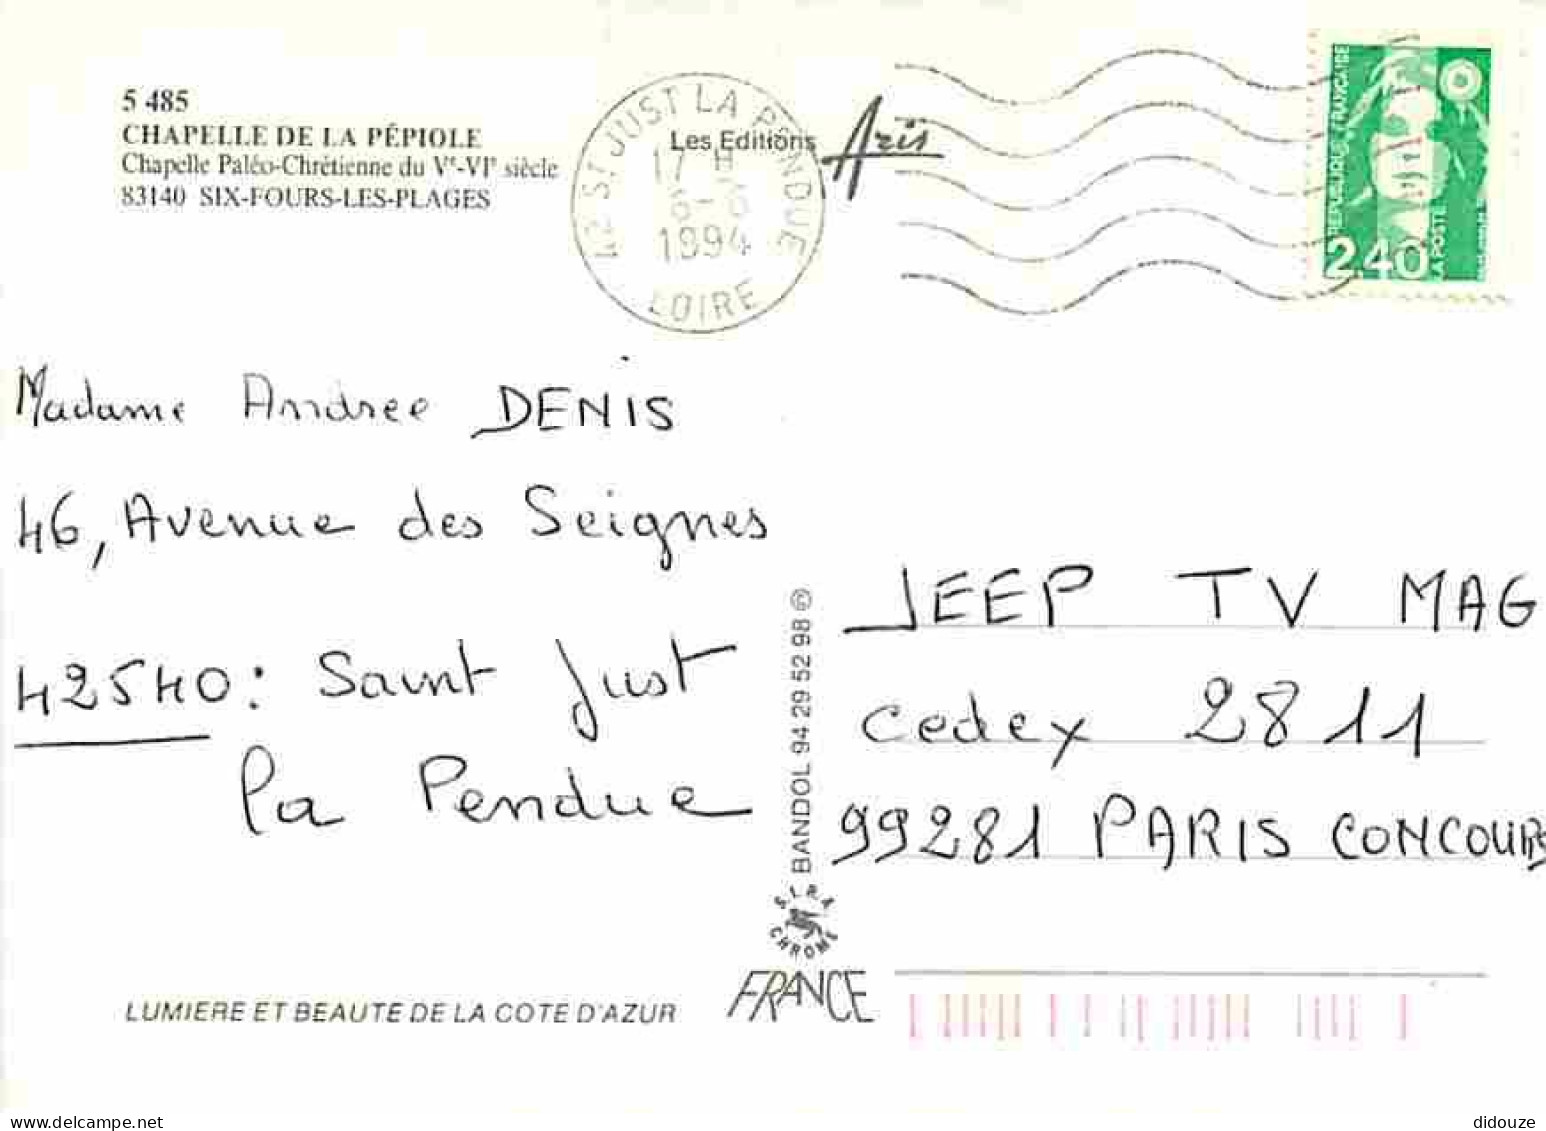 5 485
CHAPELLE DE LA PÉPIOLE
Chapelle Paléo-Chrétienne du Ve-VIe siècle
83140 SIX-FOURS-LES-PLAGES
Les Editions Aris
42 ST JUST LA PENDUE
17 H
1994
LOIRE
REPUBLIQUE FRANÇAISE
LA POSTE
2,40
Madame Andree DENIS
46, Avenue des Seignes
42540: Saint Just
la Pendue
BANDOL 94 29 52 98 ©
S.I.R.A.
CHROME
FRANCE
JEEP TV MAG
Cedex 2811
99281 PARIS CONCOURS
LUMIERE ET BEAUTE DE LA COTE D'AZUR
didouze